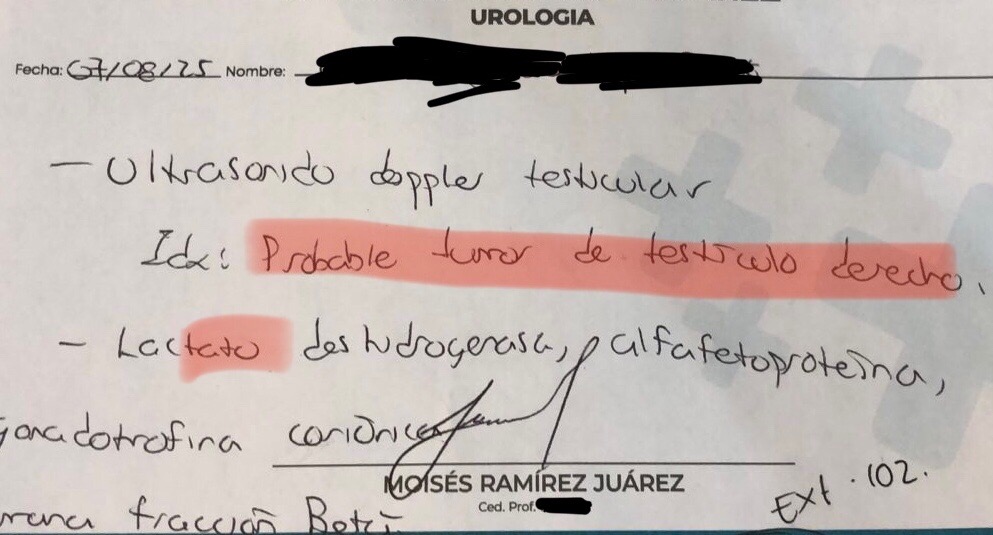 UROLOGIA
Fecha: 07/08/25 Nombre:
- Ultrasonido doppler testicular
Idx: Probable tumor de testiculo derecho.
- Lactato deshidrogenasa, alfafetoproteína,
gonadotrofina coriónica
MOISÉS RAMÍREZ JUÁREZ
Ced. Prof.
Ext. 102.
fracción Beta